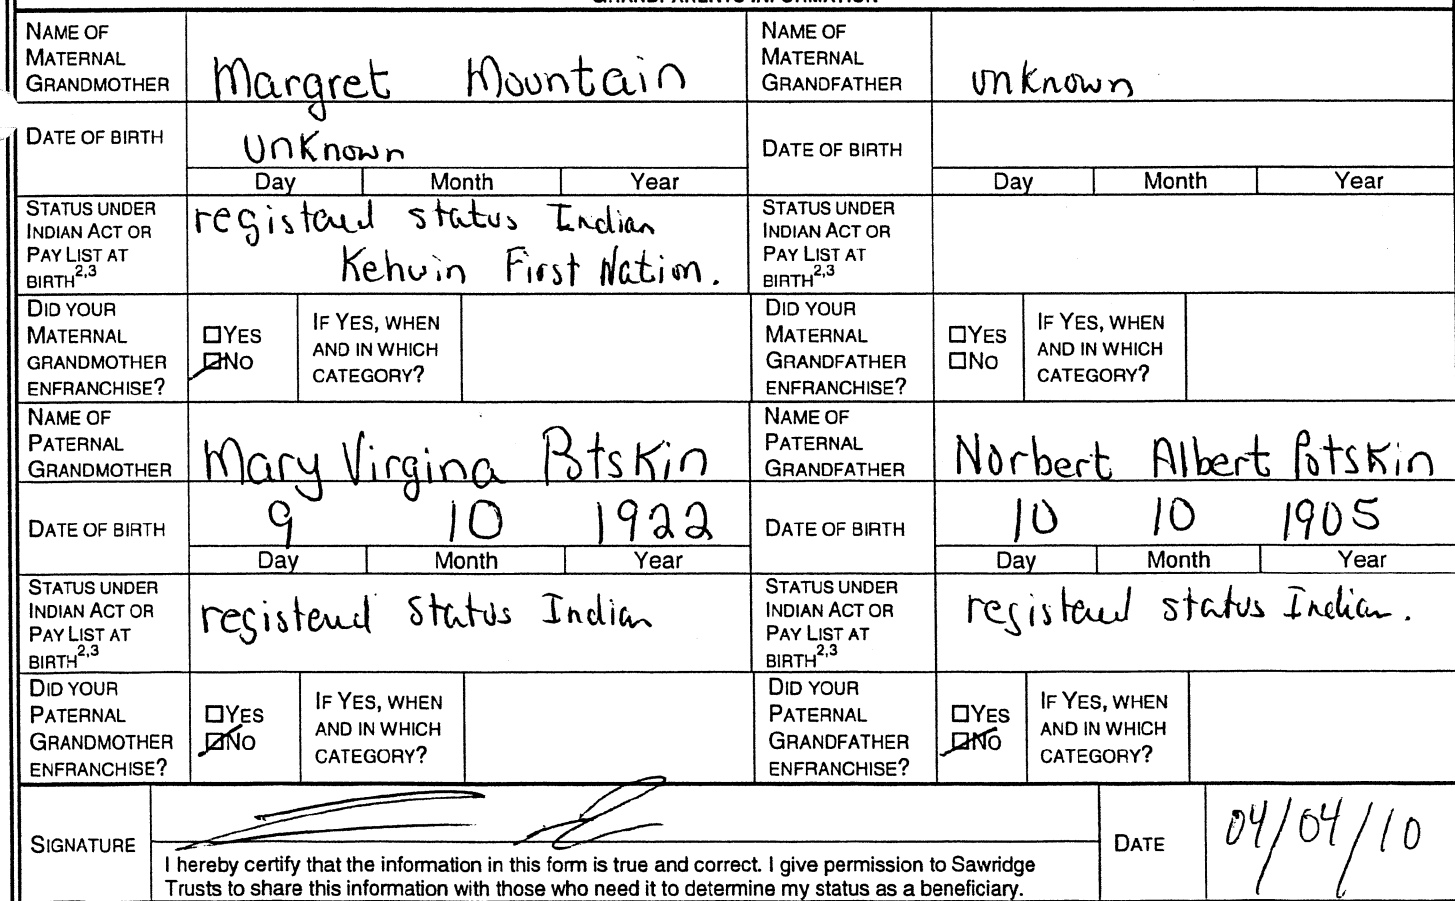 GRANDPARENTS INFORMATION
NAME OF MATERNAL GRANDMOTHER Margret Mountain
NAME OF MATERNAL GRANDFATHER unknown
DATE OF BIRTH unknown
Day Month Year
DATE OF BIRTH
Day Month Year
STATUS UNDER INDIAN ACT OR PAY LIST AT BIRTH2,3
registerd status Indian
Kehwin First Nation.
STATUS UNDER INDIAN ACT OR PAY LIST AT BIRTH2,3
DID YOUR MATERNAL GRANDMOTHER ENFRANCHISE?
☐YES
☑NO
IF YES, WHEN AND IN WHICH CATEGORY?
DID YOUR MATERNAL GRANDFATHER ENFRANCHISE?
☐YES
☐NO
IF YES, WHEN AND IN WHICH CATEGORY?
NAME OF PATERNAL GRANDMOTHER Mary Virgina Potskin
NAME OF PATERNAL GRANDFATHER Norbert Albert Potskin
DATE OF BIRTH 9 10 1922
Day Month Year
DATE OF BIRTH 10 10 1905
Day Month Year
STATUS UNDER INDIAN ACT OR PAY LIST AT BIRTH2,3
registerd status Indian
STATUS UNDER INDIAN ACT OR PAY LIST AT BIRTH2,3
registerd status Indian.
DID YOUR PATERNAL GRANDMOTHER ENFRANCHISE?
☐YES
☑NO
IF YES, WHEN AND IN WHICH CATEGORY?
DID YOUR PATERNAL GRANDFATHER ENFRANCHISE?
☐YES
☑NO
IF YES, WHEN AND IN WHICH CATEGORY?
SIGNATURE
I hereby certify that the information in this form is true and correct. I give permission to Sawridge
Trusts to share this information with those who need it to determine my status as a beneficiary.
DATE 04/04/10